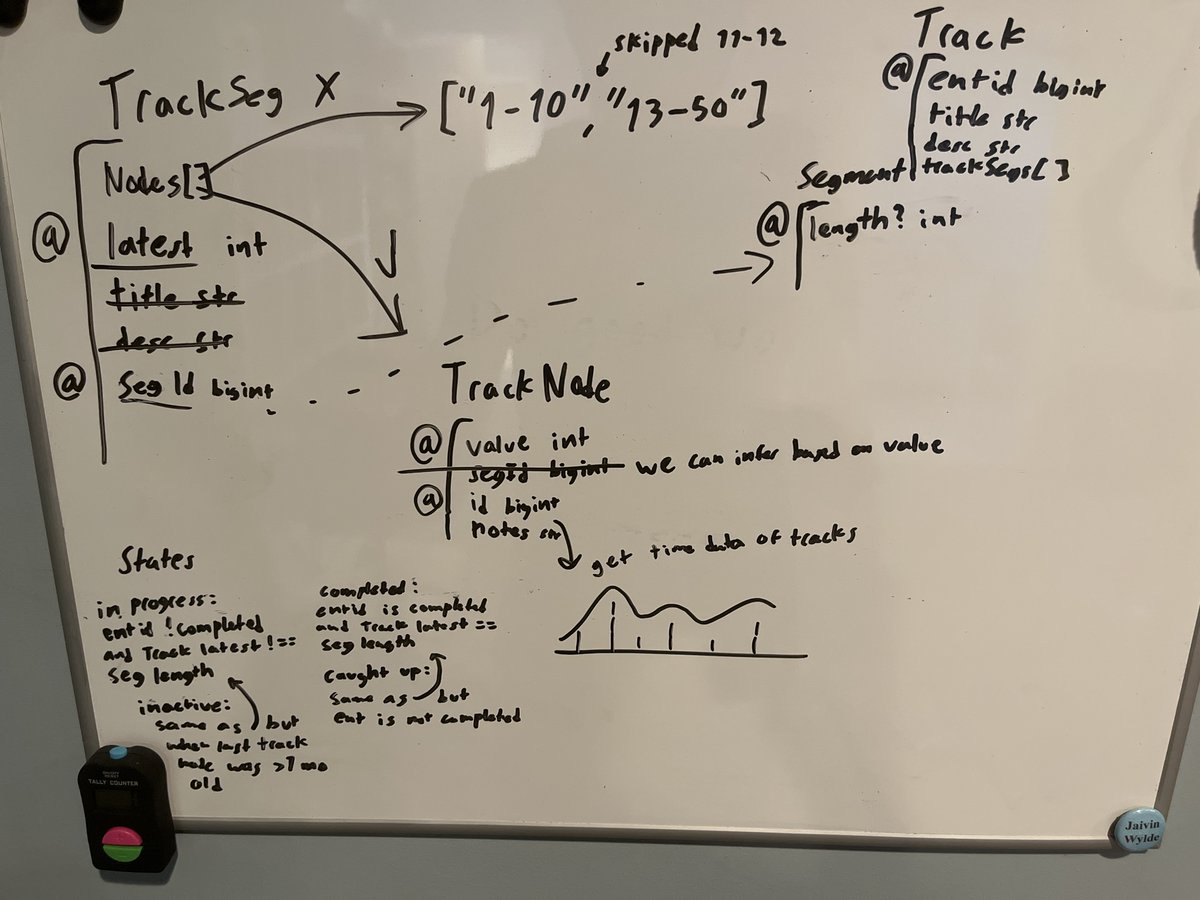 skipped 11-12
TrackSeg X
["1-10", "13-50"]
Nodes[]
@ latest int
title str
desc str
@ Seg Id bigint
Track
@ entid bigint
title str
desc str
trackSegs[]
Segment
@ length? int
TrackNode
@ value int
segId bigint we can infer based on value
@ id bigint
notes str
get time data of tracks
States
in progress:
entid !completed
and Track latest !==
seg length
inactive:
same as but
when last track
node was >1 mo
old
completed:
entid is completed
and Track latest ==
seg length
caught up:
same as but
ent is not completed
ON/OFF
RESET
TALLY COUNTER
Jaivin
Wylde